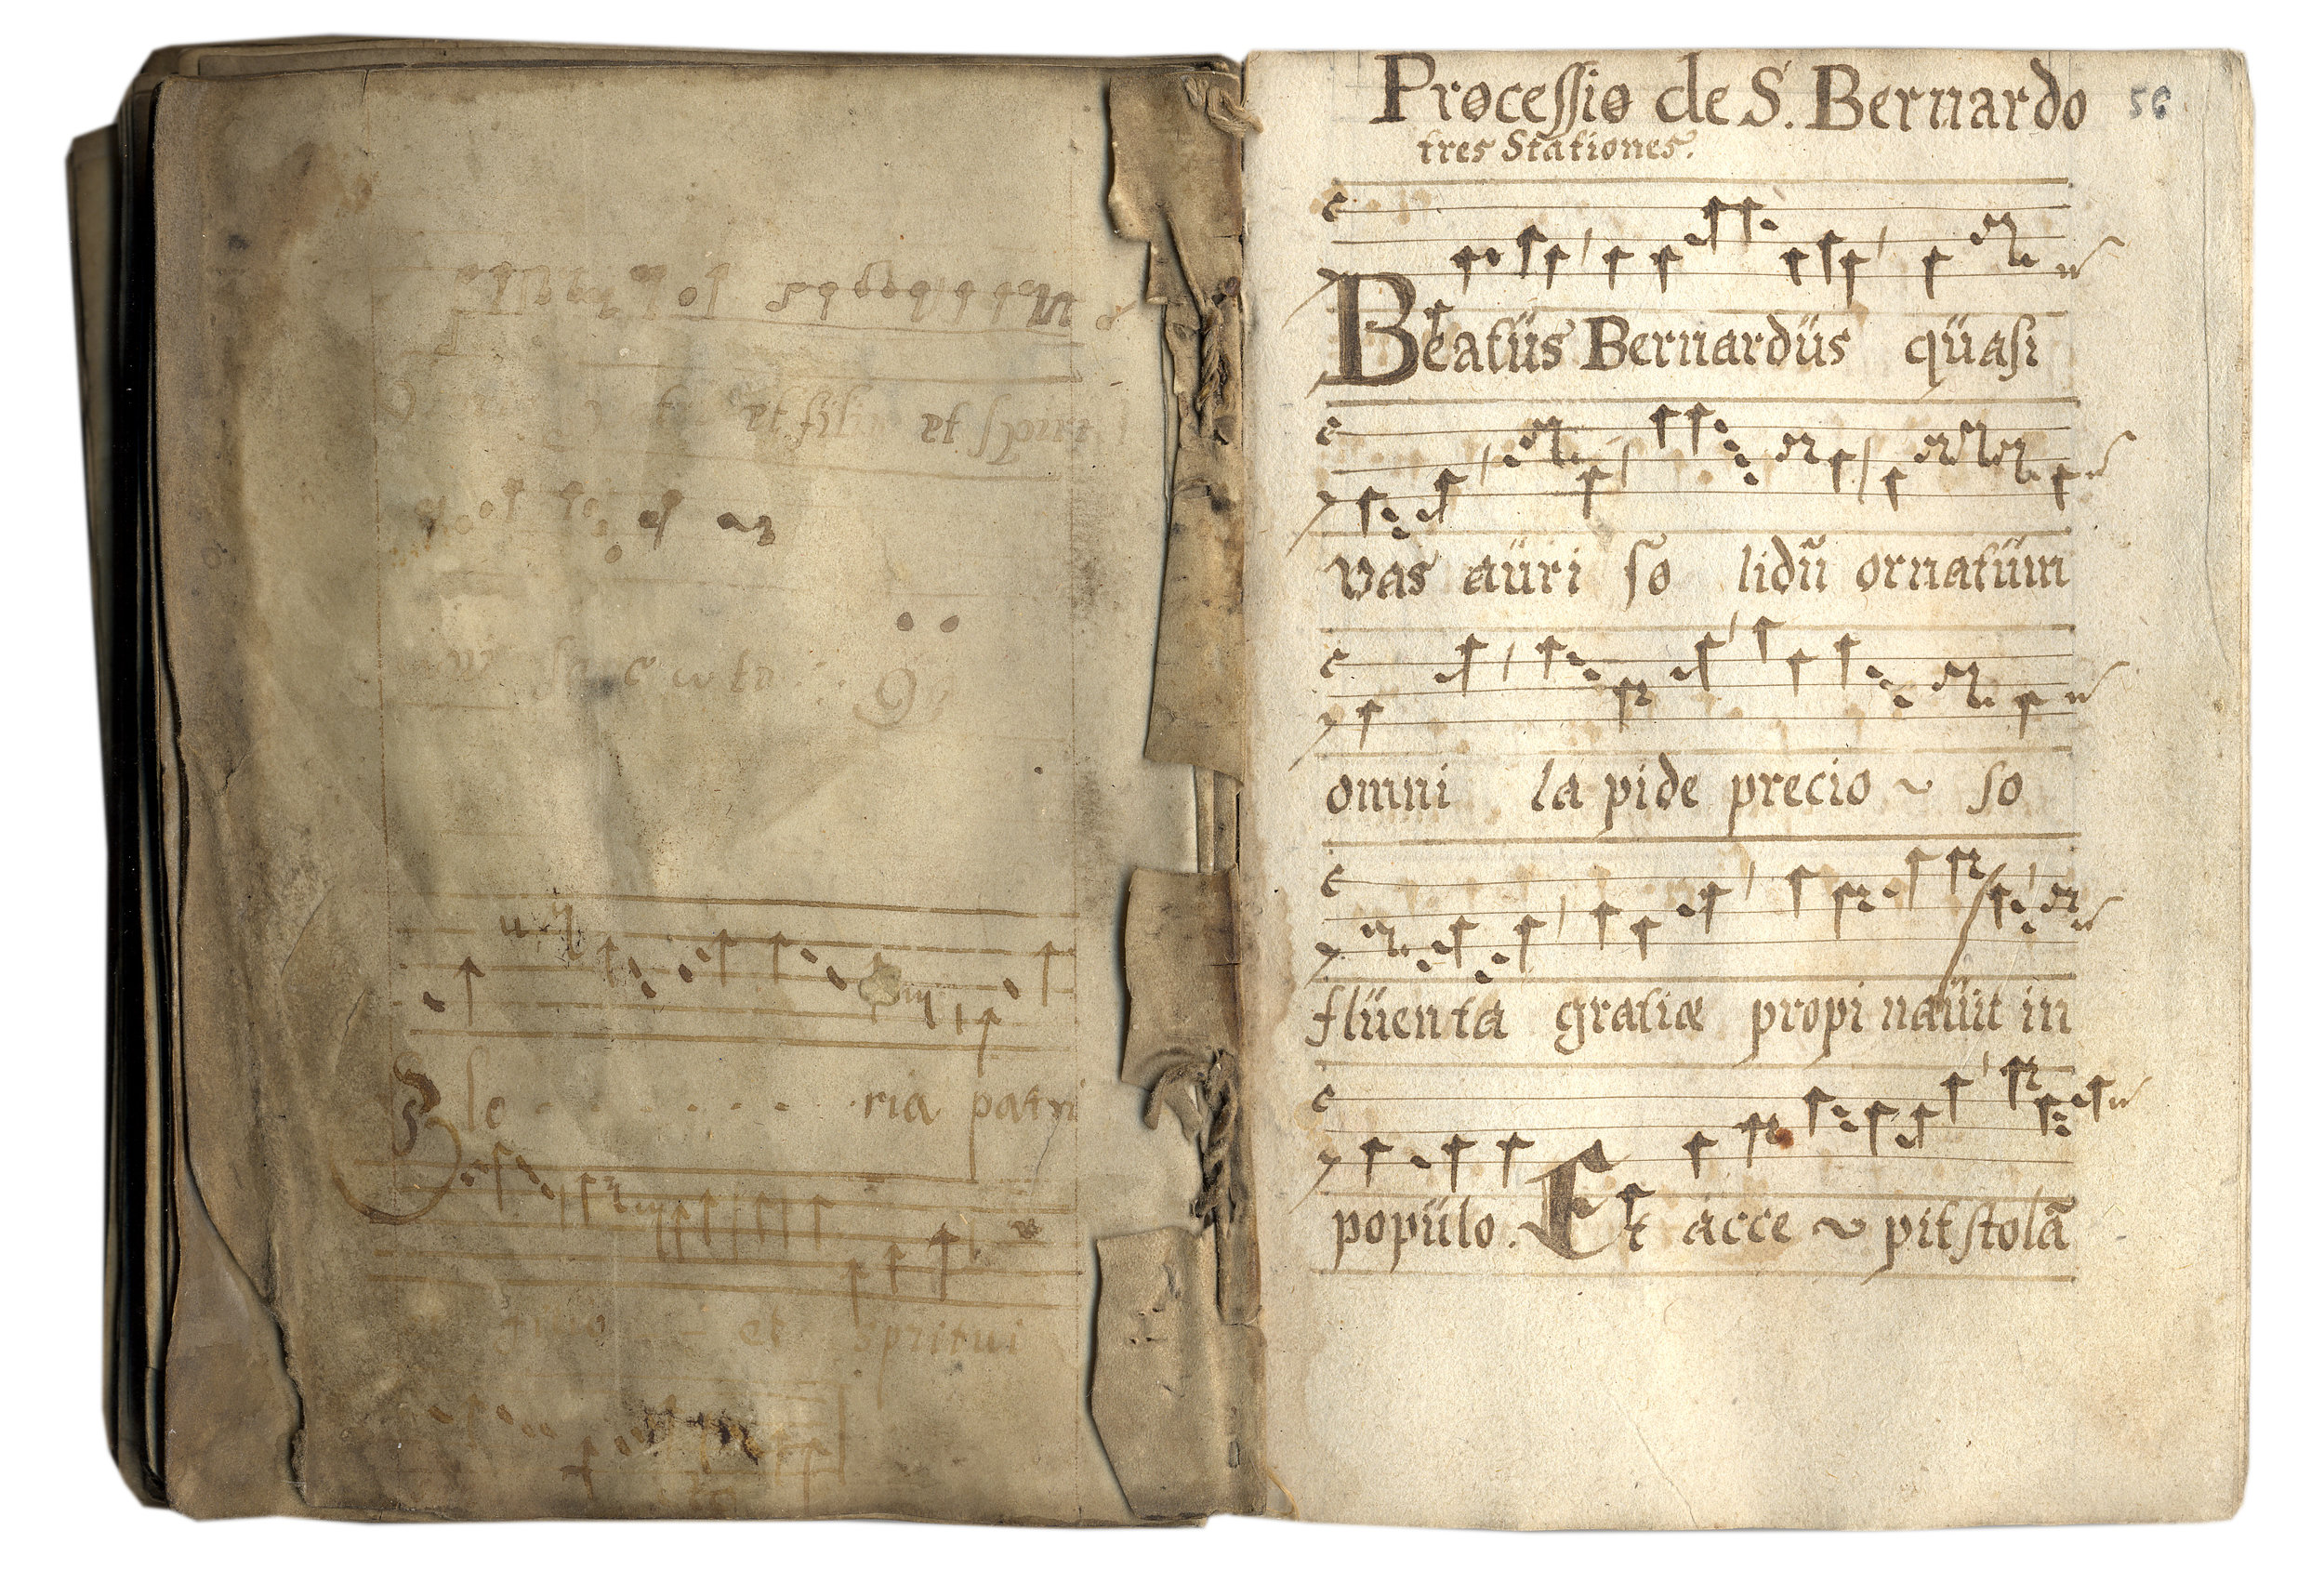 et fili et spirit
Glo - - - - - - ria patri
et spritui
Processio de S. Bernardo 56
tres Stationes.
Beatüs Bernardüs qüasi
vas aüri so lidũ ornatüm
omni la pide precio ~ so
flüenta gratiæ propi naüit in
popülo. Et acce ~ pit stolã